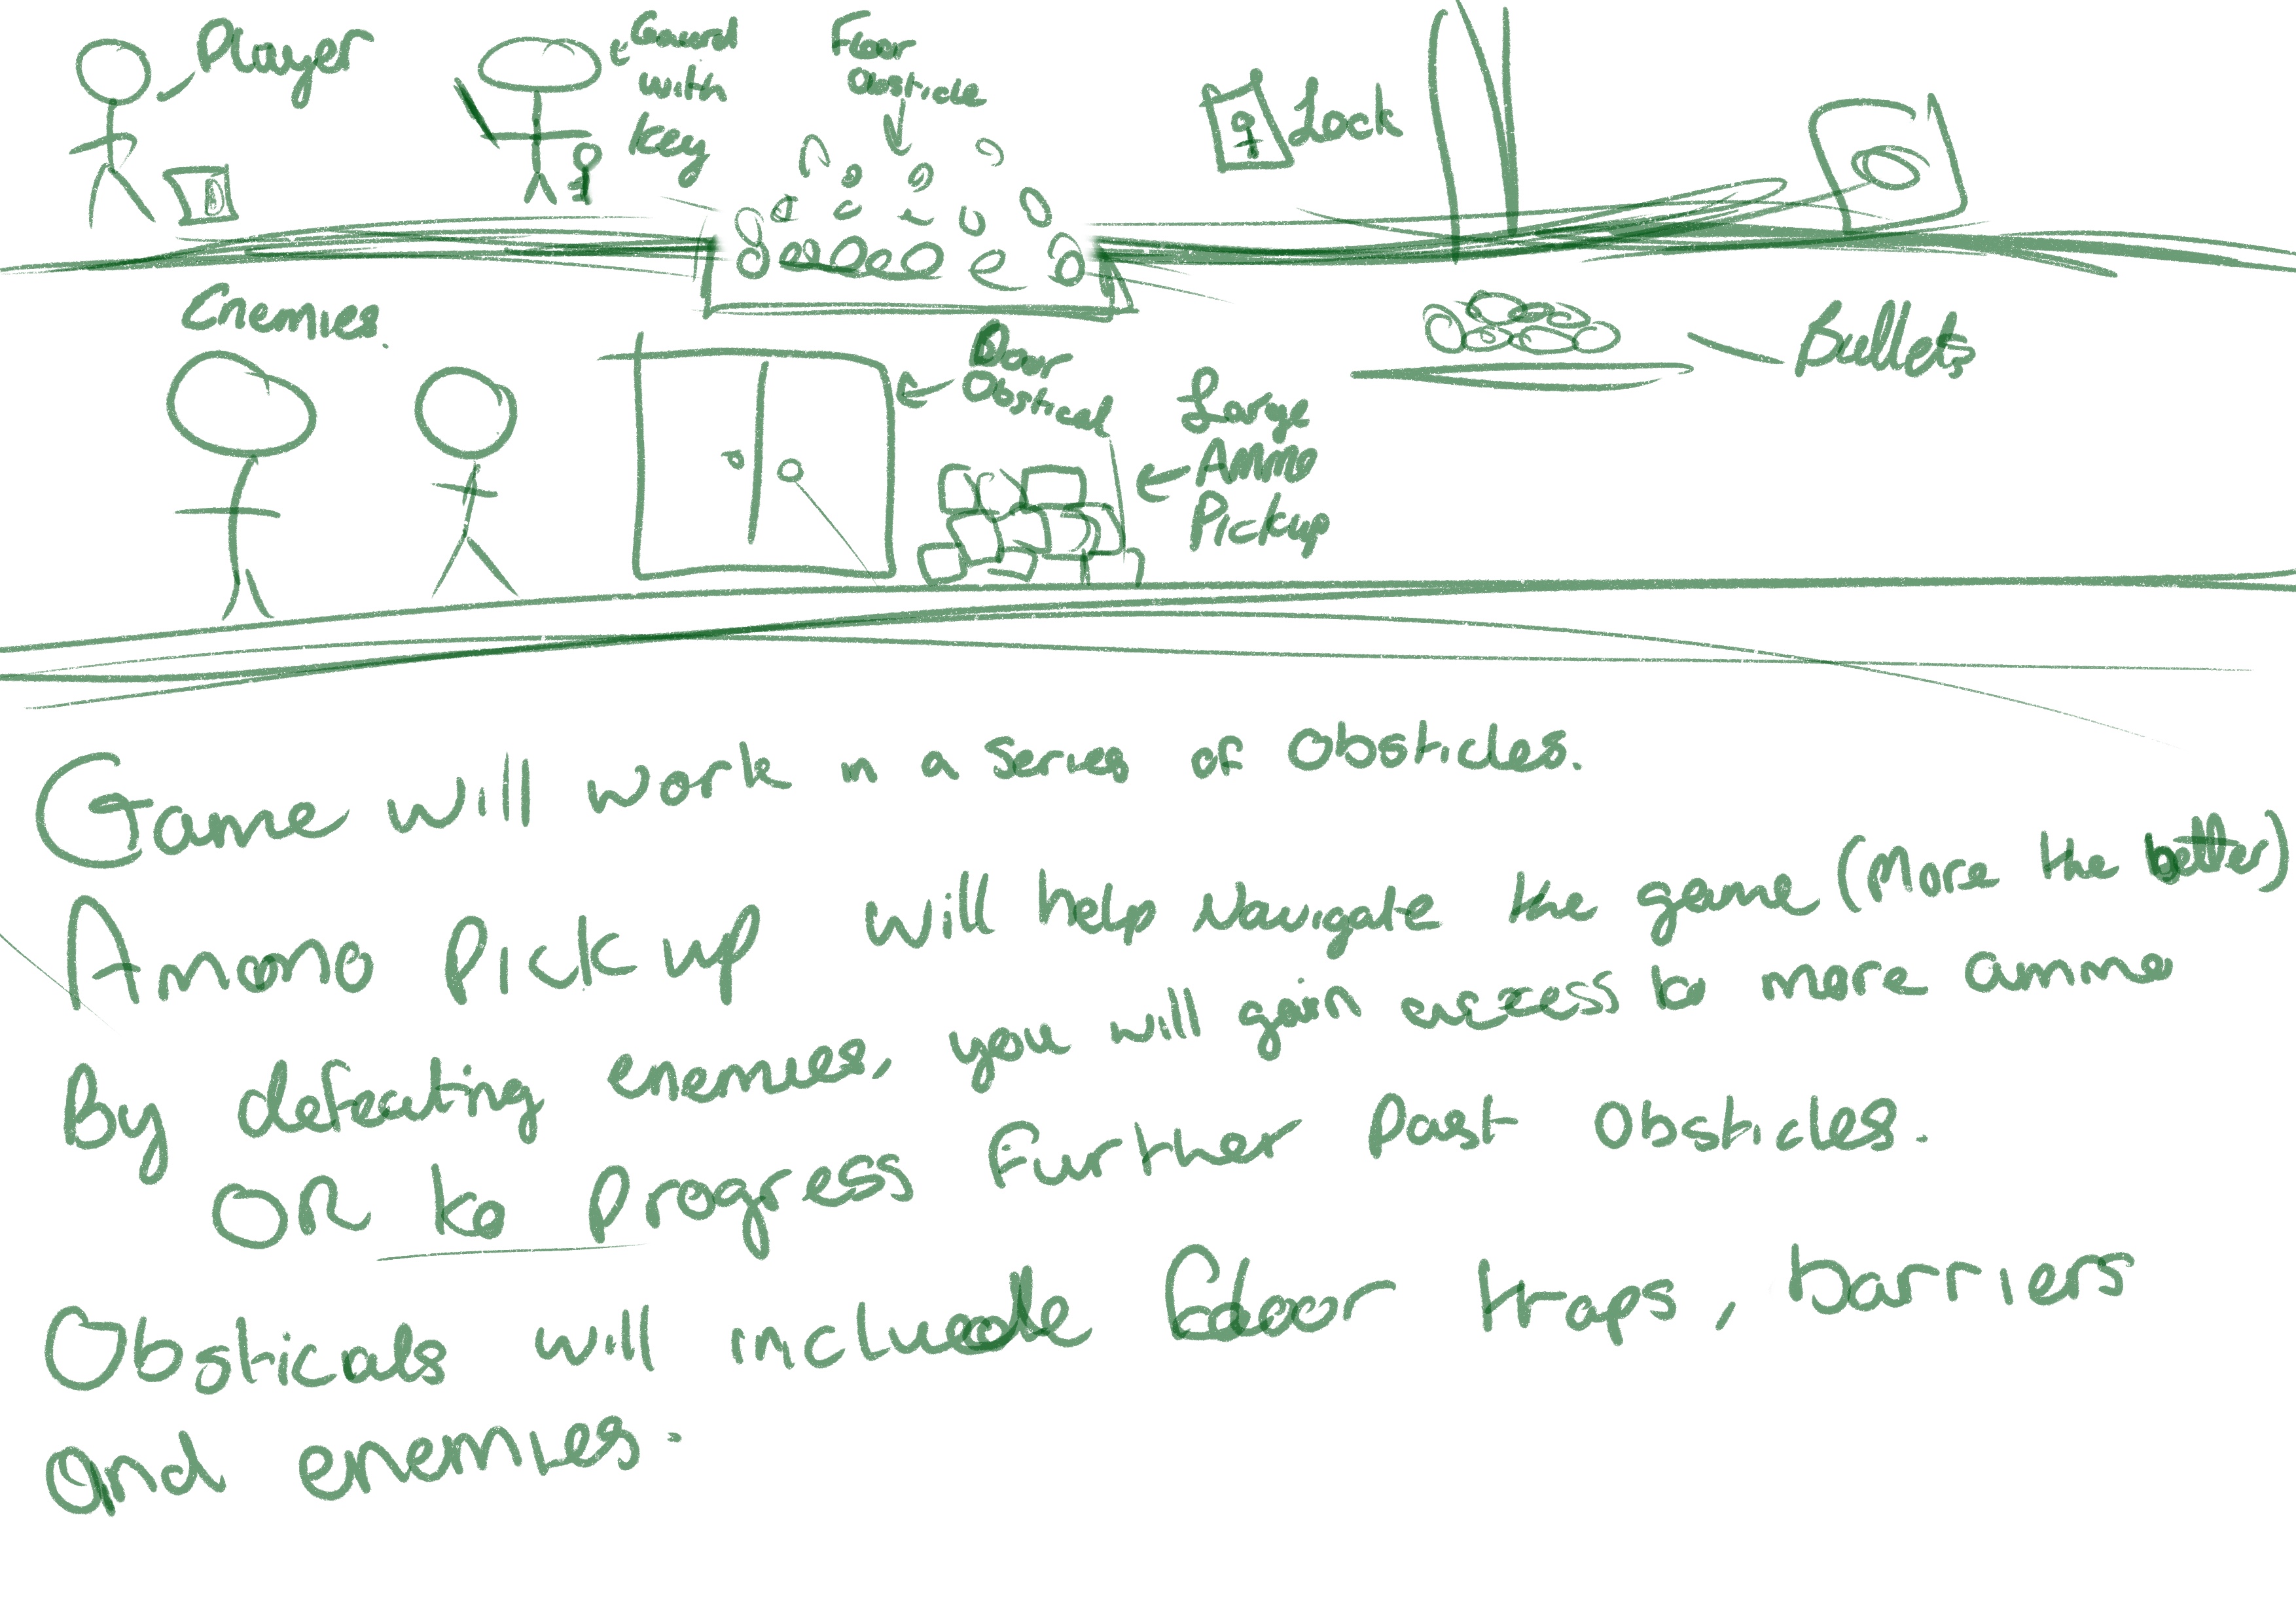 Player
Guard
with
key
Floor
Obsticle
Lock
Enemies.
Door
Obstical
Large
Ammo
Pickup
Bullets
Game will work in a series of Obsticles.
Ammo Pick up will help Navigate the game (More the better)
By defeating enemies, you will gain access to more ammo
OR to Progress further Past Obsticles.
Obsticals will include floor traps, barriers
and enemies.